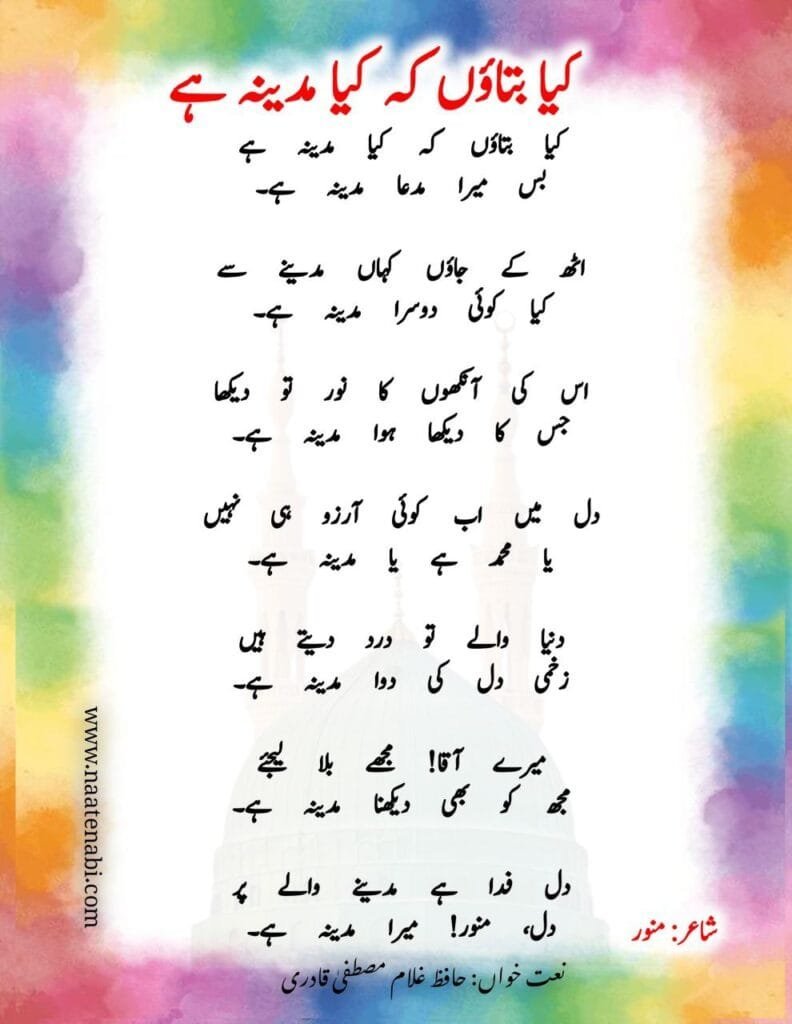 کیا بتاؤں کہ کیا مدینہ ہے
کیا بتاؤں کہ کیا مدینہ ہے
بس میرا مدعا مدینہ ہے۔
اٹھ کے جاؤں کہاں مدینے سے
کیا کوئی دوسرا مدینہ ہے۔
اس کی آنکھوں کا نور تو دیکھا
جس کا دیکھا ہوا مدینہ ہے۔
دل میں اب کوئی آرزو ہی نہیں
یا محمد ہے یا مدینہ ہے۔
دنیا والے تو درد دیتے ہیں
زخمی دل کی دوا مدینہ ہے۔
میرے آقا! مجھے بلا لیجئے
مجھ کو بھی دیکھنا مدینہ ہے۔
دل فدا ہے مدینے والے پر
دل، منور! میرا مدینہ ہے۔
شاعر: منور
نعت خواں: حافظ غلام مصطفیٰ قادری
www.naatenabi.com